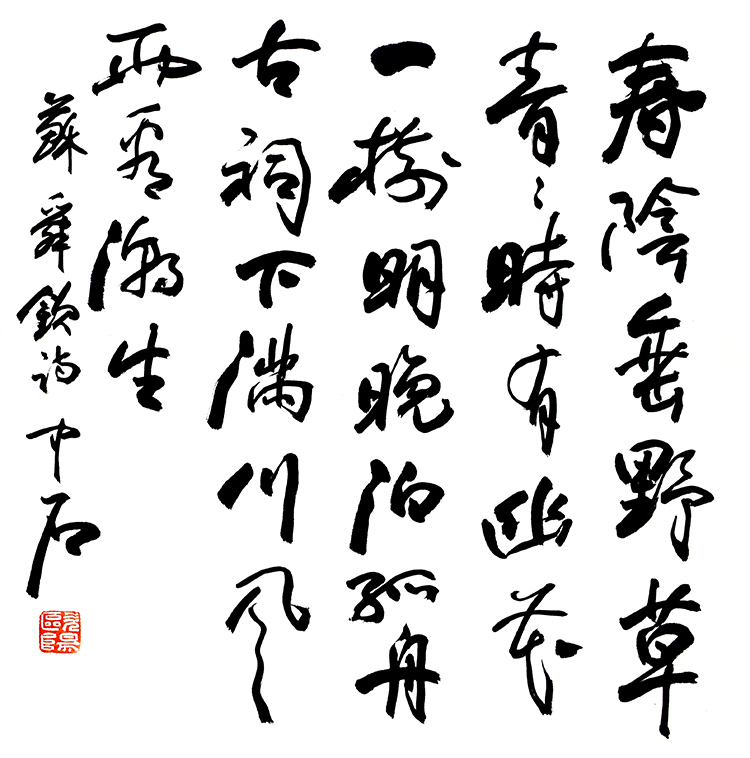 春陰垂野草
青〻時有幽花
一樹明晚泊孤舟
古祠下滿川風
雨看潮生
蘇舜欽詩 中石